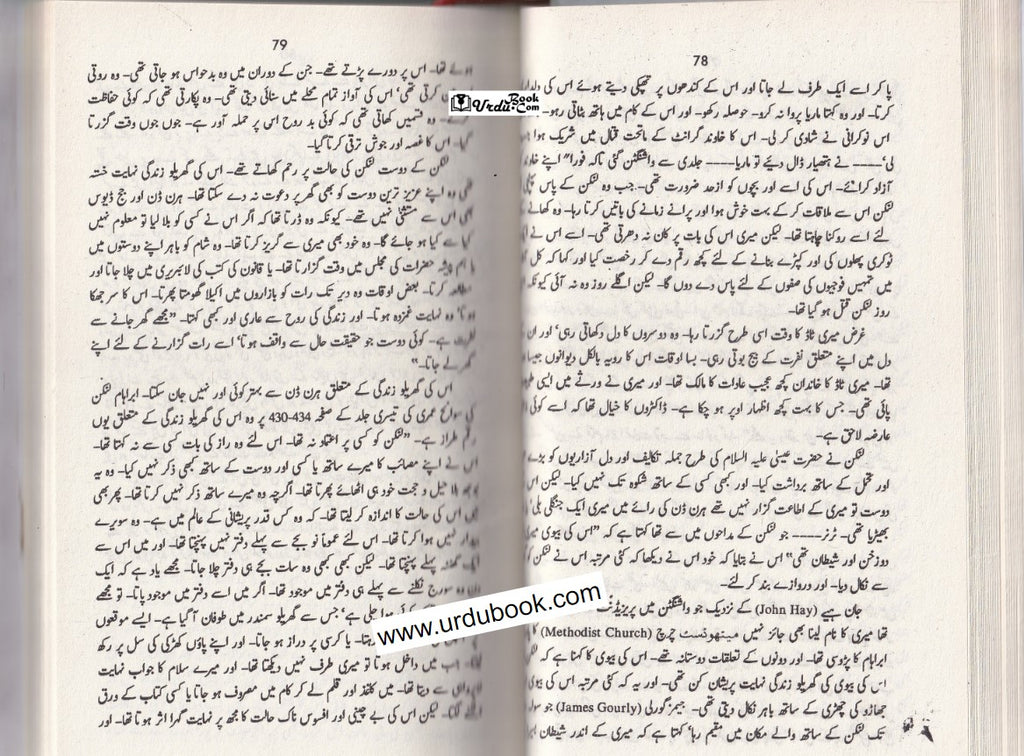 78
پا کر اسے ایک طرف لے جاتا اور اس کے کندھوں پر تھپکی دیتے ہوئے اس کی
کرتا۔ اور وہ کہتا ماریا پروا نہ کرو۔ حوصلہ رکھو۔ اور اس کے کام میں ہاتھ بٹاتی رہو۔
اس نوکرانی نے شادی کر لی۔ اس کا خاوند گرانٹ کے ماتحت قتال میں شریک ہوا
لی‘---- نے ہتھیار ڈال دیئے تو ماریا---- جلدی سے واشنگٹن گئی تاکہ فورا" اپنے
آزاد کرائے۔ اس کی اسے اور بچوں کو ازحد ضرورت تھی۔ جب وہ لنکن کے پاس
لنکن اس سے ملاقات کر کے بہت خوش ہوا اور پرانے زمانے کی باتیں کرتا رہا۔ وہ کھانے
لئے اسے روکنا چاہتا تھا۔ لیکن میری اس کی بات پر کان نہ دھرتی تھی۔ اسے اس نے
ٹوکری پھلوں کی اور کپڑے بنانے کے لئے کچھ رقم دے کر رخصت کیا اور کہا کہ کل
میں تمہیں فوجیوں کی صفوں کے لئے پاس دے دوں گا۔ لیکن اگلے روز وہ نہ آئی کیونکہ
روز لنکن قتل ہو گیا تھا۔
غرض میری ٹاڈ کا وقت اسی طرح گزرتا رہا۔ وہ دوسروں کا دل دکھاتی رہی‘ اور ان
دل میں اپنے متعلق نفرت کے بیج بوتی رہی۔ بسا اوقات اس کا رویہ بالکل دیوانوں جیسا
تھا۔ میری ٹاڈ کا خاندان کچھ عجیب عادات کا مالک تھا۔ اور میری نے ورثے میں ایسی
پائی تھی۔ جس کا بہت کچھ اظہار اوپر ہو چکا ہے۔ ڈاکٹروں کا خیال تھا کہ اسے کوئی
عارضہ لاحق ہے۔
لنکن نے حضرت عیسیٰ علیہ السلام کی طرح جملہ تکالیف اور دل آزاریوں کو بڑے
اور تحمل کے ساتھ برداشت کیا۔ اور کبھی کسی کے ساتھ شکوہ تک نہیں کیا۔ لیکن اس
دوست تو میری کے اطاعت گزار نہیں تھے ہرن ڈن کی رائے میں میری ایک جنگلی بلی‘
بھیڑیا تھی۔ ٹرنر---- جو لنکن کے مداحوں میں سے تھا کہتا ہے کہ "اس کی بیوی
دوزخن اور شیطان تھی" اس نے بتایا کہ خود اس نے دیکھا کہ کئی مرتبہ اس نے لنکن
سے نکال دیا۔ اور دروازے بند کر لئے۔
جان ہے (John Hay) کے نزدیک جو واشنگٹن میں پریزیڈنٹ
تھا میری کا نام لینا بھی جائز نہیں میتھوڈسٹ چرچ (Methodist Church)
ابراہام کا پڑوسی تھا۔ اور دونوں کے تعلقات دوستانہ تھے۔ اس کی بیوی کا کہنا ہے کہ
اس کی بیوی کی گھریلو زندگی نہایت پریشان کن تھی۔ اور یہ کہ کئی مرتبہ اس کی بیوی
جھاڑو کی چھڑی کے ساتھ باہر نکال دیتی تھی۔ جیمز گورلی (James Gourly) جو
تک لنکن کے ساتھ والے مکان میں مقیم رہا‘ کہتا ہے کہ میری کے اندر شیطان
79
تھا۔ اس پر دورے پڑتے تھے۔ جن کے دوران میں وہ بدحواس ہو جاتی تھی۔ وہ روتی
کرتی تھی‘ اس کی آواز تمام محلے میں سنائی دیتی تھی۔ وہ پکارتی تھی کہ کوئی حفاظت
وہ قسمیں کھاتی تھی کہ کوئی بد روح اس پر حملہ آور ہے۔ جوں جوں وقت گزرتا
گیا۔ اس کا غصہ اور جوش ترقی کرتا گیا۔
لنکن کے دوست لنکن کی حالت پر رحم کھاتے تھے۔ اس کی گھریلو زندگی نہایت خستہ
تھی وہ اپنے عزیز ترین دوست کو بھی گھر پر دعوت نہ دے سکتا تھا۔ ہرن ڈن اور جج ڈیوس
بھی اس سے مستثنیٰ نہیں تھے۔ کیونکہ وہ ڈرتا تھا کہ اگر اس نے کسی کو بلا لیا تو معلوم نہیں
کیا سے کیا ہو جائے گا۔ وہ خود بھی میری سے گریز کرتا تھا۔ وہ شام کو باہر اپنے دوستوں میں
یا ہم پیشہ حضرات کی مجلس میں وقت گزارتا تھا۔ یا قانون کی کتب کی لائبریری میں چلا جاتا اور
مطالعہ کرتا۔ بعض اوقات وہ دیر تک رات کو بازاروں میں اکیلا گھومتا پھرتا۔ اس کا سر جھکا
ہوتا‘ وہ نہایت غمزدہ ہوتا۔ اور زندگی کی روح سے عاری اور کبھی کہتا۔ "مجھے گھر جانے سے
نفرت ہے۔ کوئی دوست جو حقیقت حال سے واقف ہوتا‘ اسے رات گزارنے کے لئے اپنے
گھر لے جاتا۔"
اس کی گھریلو زندگی کے متعلق ہرن ڈن سے بہتر کوئی اور نہیں جان سکتا۔ ابراہام لنکن
کی سوانح عمری کی تیسری جلد کے صفحہ 434-430 پر وہ اس کی گھریلو زندگی کے متعلق یوں
رقم طراز ہے۔ "لنکن کو کسی پر اعتماد نہ تھا۔ اس لئے وہ راز کی بات کسی سے نہ کہتا تھا۔
اس نے اپنے مصائب کا میرے ساتھ یا کسی اور دوست کے ساتھ کبھی ذکر نہیں کیا۔ وہ یہ
بوجھ بلا حیل و حجت خود ہی اٹھائے پھرتا تھا۔ اگرچہ وہ میرے ساتھ ذکر نہیں کرتا تھا۔ پھر بھی
میں اس کی حالت کا اندازہ کر لیتا تھا۔ کہ وہ کس قدر پریشانی کے عالم میں ہے۔ وہ سویرے
بیدار نہیں ہوا کرتا تھا۔ اس لئے عموماً نو بجے سے پہلے دفتر نہیں پہنچتا تھا۔ اور میں اس سے
ایک گھنٹہ پہلے پہنچتا تھا۔ لیکن کبھی کبھی وہ سات بجے ہی دفتر چلا جاتا۔ مجھے یاد ہے کہ ایک
وہ سورج نکلنے سے پہلے ہی دفتر میں موجود تھا۔ اگر میں اسے دفتر میں موجود پاتا۔ تو مجھے
کوئی ہوا چلی ہے‘ جس سے گھریلو سمندر میں طوفان آ گیا ہے۔ ایسے موقعوں
یا کرسی پر دراز ہو جاتا۔ اور اپنے پاؤں کھڑکی کی سل پر رکھ
جب میں داخل ہوتا تو میری طرف نہیں دیکھتا تھا۔ اور میرے سلام کا جواب نہایت
سے دیتا تھا۔ میں کاغذ اور قلم لے کر کام میں مصروف ہو جاتا یا کسی کتاب کے ورق
الٹنے لگتا۔ لیکن اس کی بے چینی اور افسوس ناک حالت کا مجھ پر نہایت گہرا اثر ہوتا تھا۔ اور
UrduBook.Com
www.urdubook.com